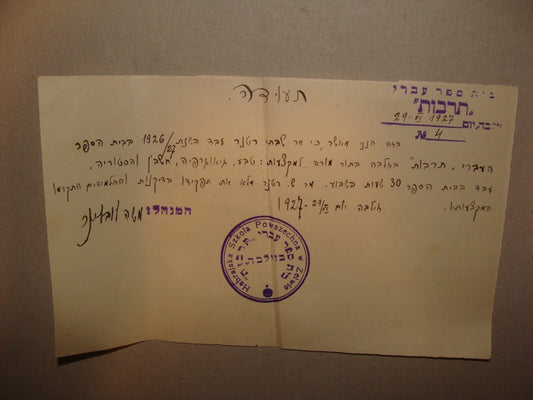 בית ספר עברי
"תרבות"
29-VI 1927
№ 4
תעודה.
בזה הנני מאשר, כי מר שבתי רטנר עבד בשנת 1926/27 בבית הספר
העברי "תרבות" בזלבה בתור מורה למקצעות: טבע, גיאוגרפיה, חשבון והסטוריה.
עבד בבית הספר 30 שעות בשבוע. מר ש. רטנר מלא את תפקידו בדיקנות והתלמידים התקדמו
במקצועותיו.
זולבה יום 29/VI - 1927
המנהל: משה
Hebrajska Szkoła Powszechna w Zelwie
בית ספר עברי "תרבות"
בזולבה